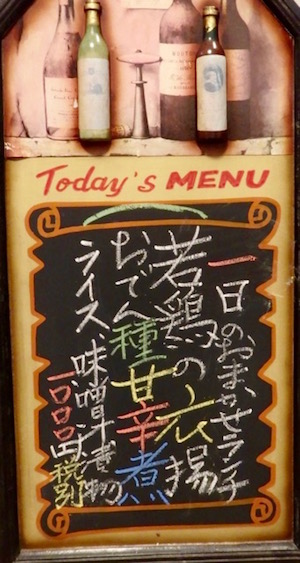 Today's MENU
一日のおまかせランチ
若鶏の広揚
おでん種甘辛煮
ライス 味噌汁漬物
一〇〇〇円税別